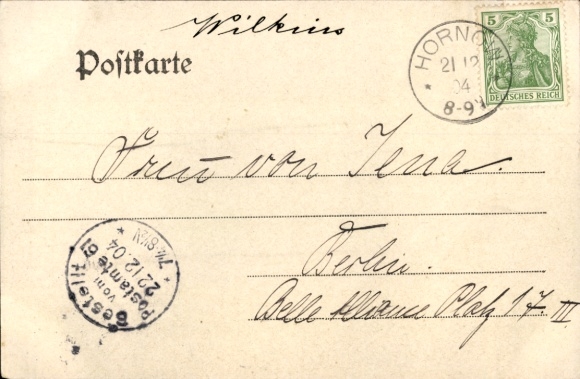 Wilkins
Postkarte
5 5
DEUTSCHES REICH
21 12
04
8-9V
Frau von Jena.
Bestellt
vom
Postamte 61
22.12.04
7¼-8½V
Berlin.
Belle Alliance Platz 17. III